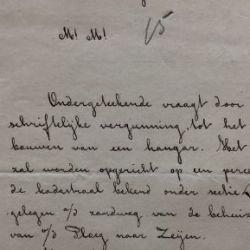 M! M!
15
Ondergeteekende vraagt door
schriftelijke vergunning, tot het
bouwen van een hangar. Het
zal worden opgericht op een perce
de kadastraal bekend onder sectie
gelegen a/d zandweg van de
van v/d Ploeg naar Zeijen.